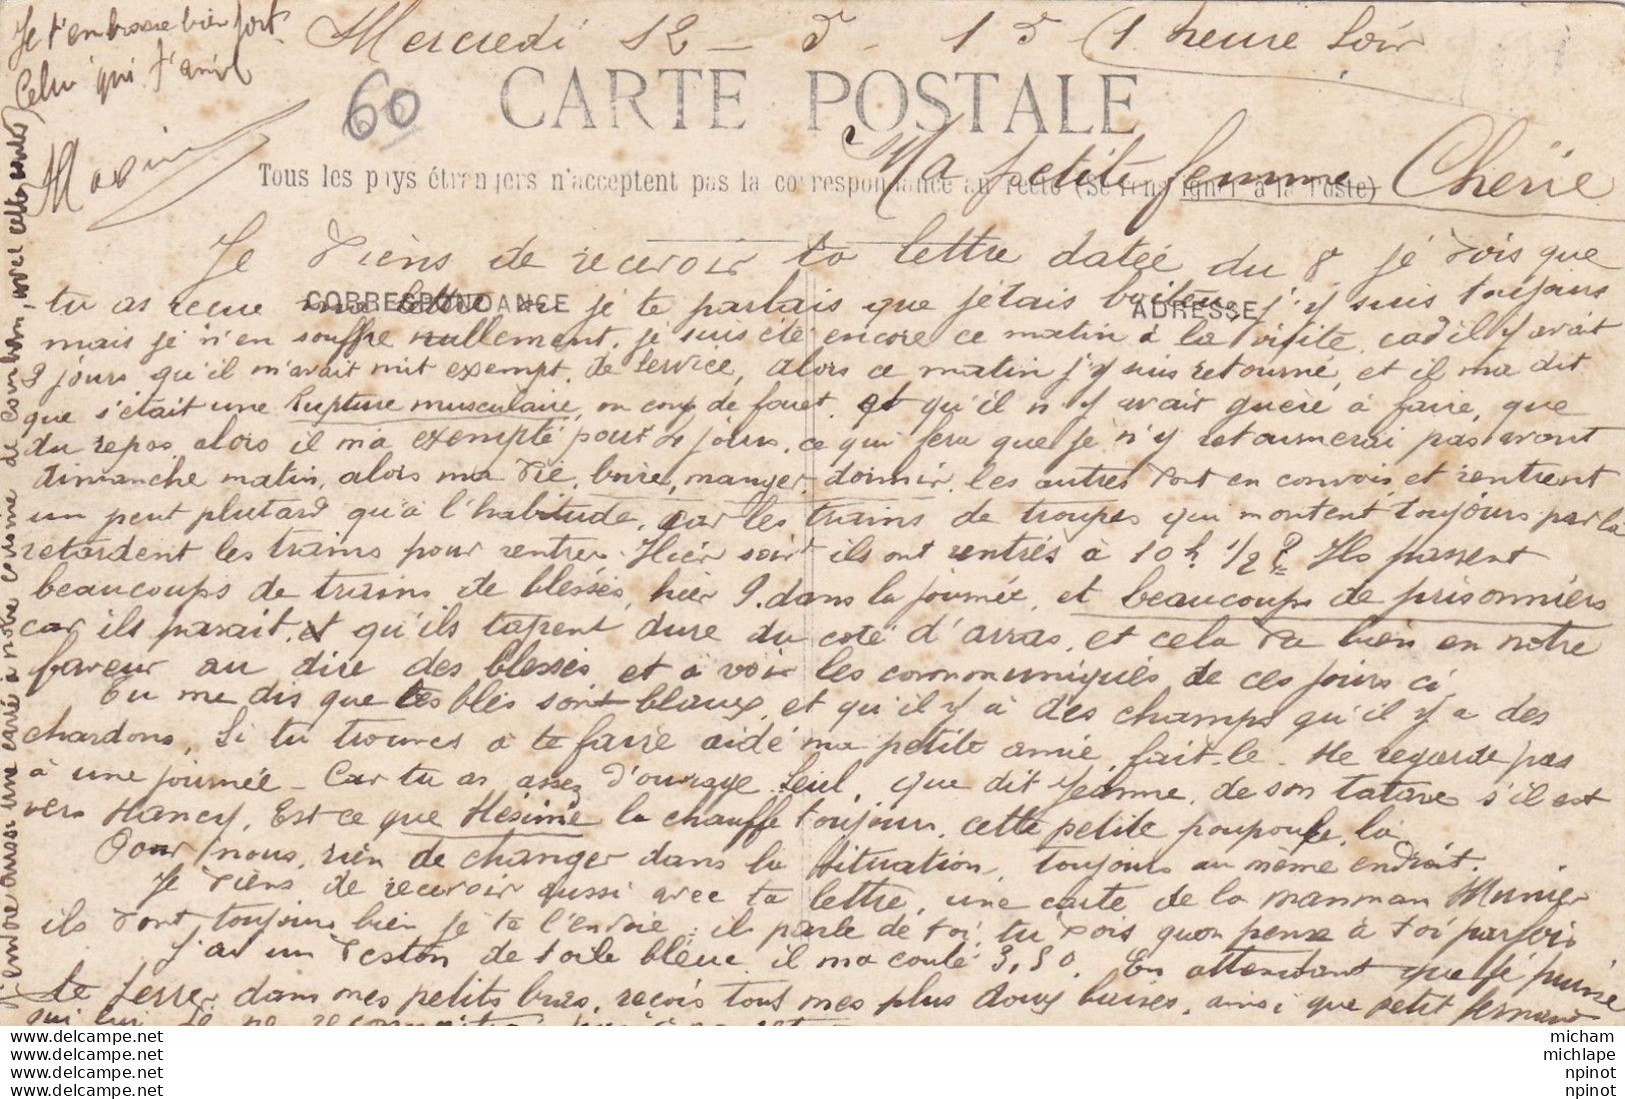 Mercredi 12 - 5 - 15 (1 heure soir
Je t'embrasse bien fort
Celui qui t'aime
60
CARTE POSTALE
Tous les pays étrangers n'acceptent pas la correspondance au recto (Se renseigner à la Poste)
Ma petite femme Chérie
Je viens de recevoir ta lettre datée du 8 je vois que
CORRESPONDANCE
ADRESSE
tu as recue ma lettre ou je te parlais que j'étais boiteux, j'y suis toujours
mais je n'en souffre nullement. je suis été encore ce matin à la visite, cad il y avait
3 jours qu'il m'avait mit exempt de service, alors ce matin j'y suis retourné, et il ma dit
que s'était une rupture musculaire, ou coup de fouet. et qu'il n'y avait guère à faire, que
du repos, alors il m'a exempté pour 4 jours, ce qui fera que je n'y retournerai pas avant
dimanche matin, alors ma vie, boire, manger, dormir, les autres vont en convois et rentrent
un peut plutard qu'à l'habitude, car les trains de troupes qui montent toujours par là
retardent les trains pour rentrer. Hièr soir ils ont rentrés à 10 h 1/2 ? Ils passent
beaucoups de trains de bléssés, hièr 9. dans la journée, et beaucoups de prisonniers
car ils parait, et qu'ils tapent dure du coté d'arras, et cela va bien en notre
faveur au dire des bléssés et à voir les communiqués de ces jours ci,
Tu me dis que les blés sont blaux, et qu'il y à des champs qu'il y a des
chardons, Si tu trouves à te faire aidé ma petite amie, fait-le. Ne regarde pas
à une journée - Car tu as assez d'ouvrage seul, que dit Jeanne, de son tatave s'il est
vers Nancy, Est ce que Hésime la chauffe toujours, cette petite poupoule, là
Pour nous, rien de changer dans la situation, toujours au même endroit.
Je viens de recevoir aussi avec ta lettre, une carte de la manman Munier
ils vont toujours bien je te l'envoie : il parle de toi, tu vois qu'on pense à toi parfois
J'ai un veston de toile bléue il ma couté 3,50. En attendant que je puisse
te serrer dans mes petits bras, reçois tous mes plus doux baisers, ainsi que petit fernand
J'envoie aussi une carte à notre cousine de Combin, avec cette carte
micham
michlape
npinot
npinot